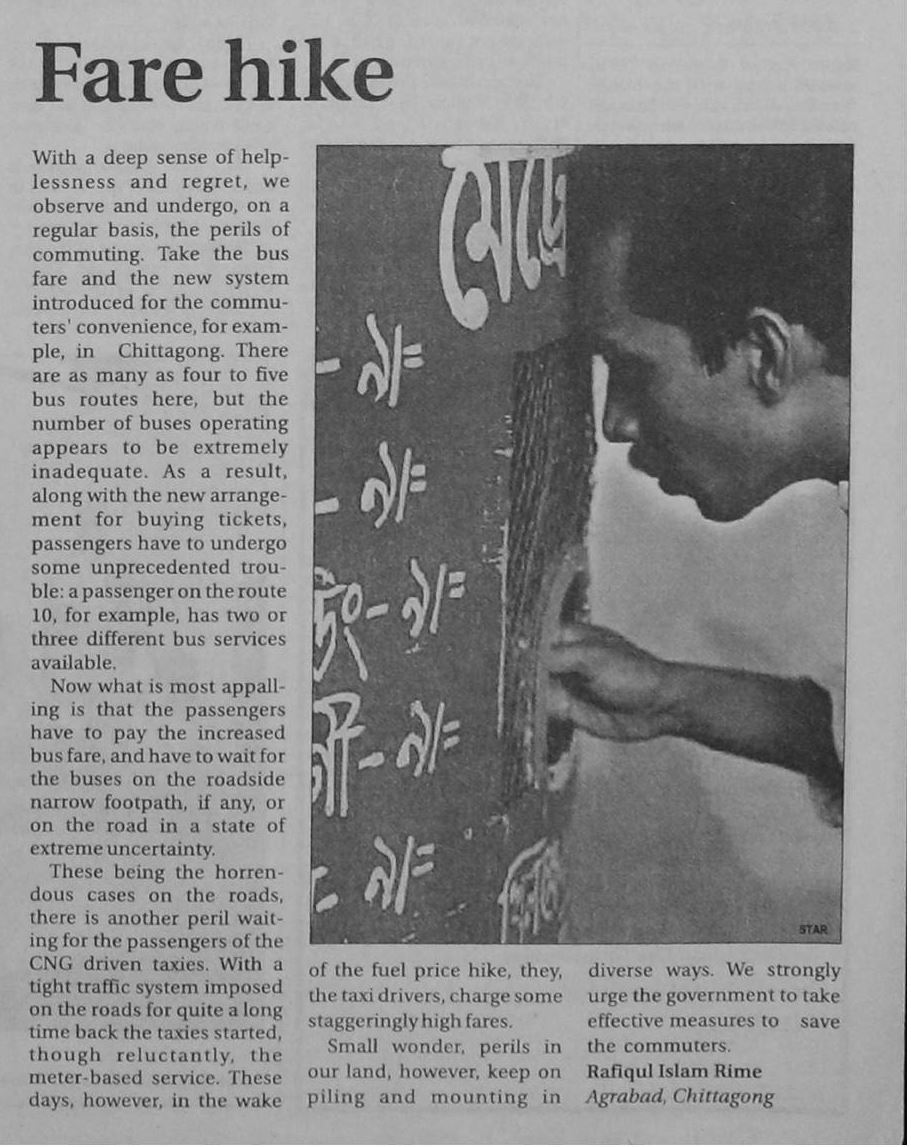 Fare hike
With a deep sense of help-
lessness and regret, we
observe and undergo, on a
regular basis, the perils of
commuting. Take the bus
fare and the new system
introduced for the commu-
ters' convenience, for exam-
ple, in Chittagong. There
are as many as four to five
bus routes here, but the
number of buses operating
appears to be extremely
inadequate. As a result,
along with the new arrange-
ment for buying tickets,
passengers have to undergo
some unprecedented trou-
ble: a passenger on the route
10, for example, has two or
three different bus services
available.
Now what is most appall-
ing is that the passengers
have to pay the increased
bus fare, and have to wait for
the buses on the roadside
narrow footpath, if any, or
on the road in a state of
extreme uncertainty.
These being the horren-
dous cases on the roads,
there is another peril wait-
ing for the passengers of the
CNG driven taxies. With a
tight traffic system imposed
on the roads for quite a long
time back the taxies started,
though reluctantly, the
meter-based service. These
days, however, in the wake
- ৯/=
- ৯/=
- ৯/=
- ৯/=
- ৯/=
STAR
of the fuel price hike, they,
the taxi drivers, charge some
staggeringly high fares.
Small wonder, perils in
our land, however, keep on
piling and mounting in
diverse ways. We strongly
urge the government to take
effective measures to save
the commuters.
Rafiqul Islam Rime
Agrabad, Chittagong